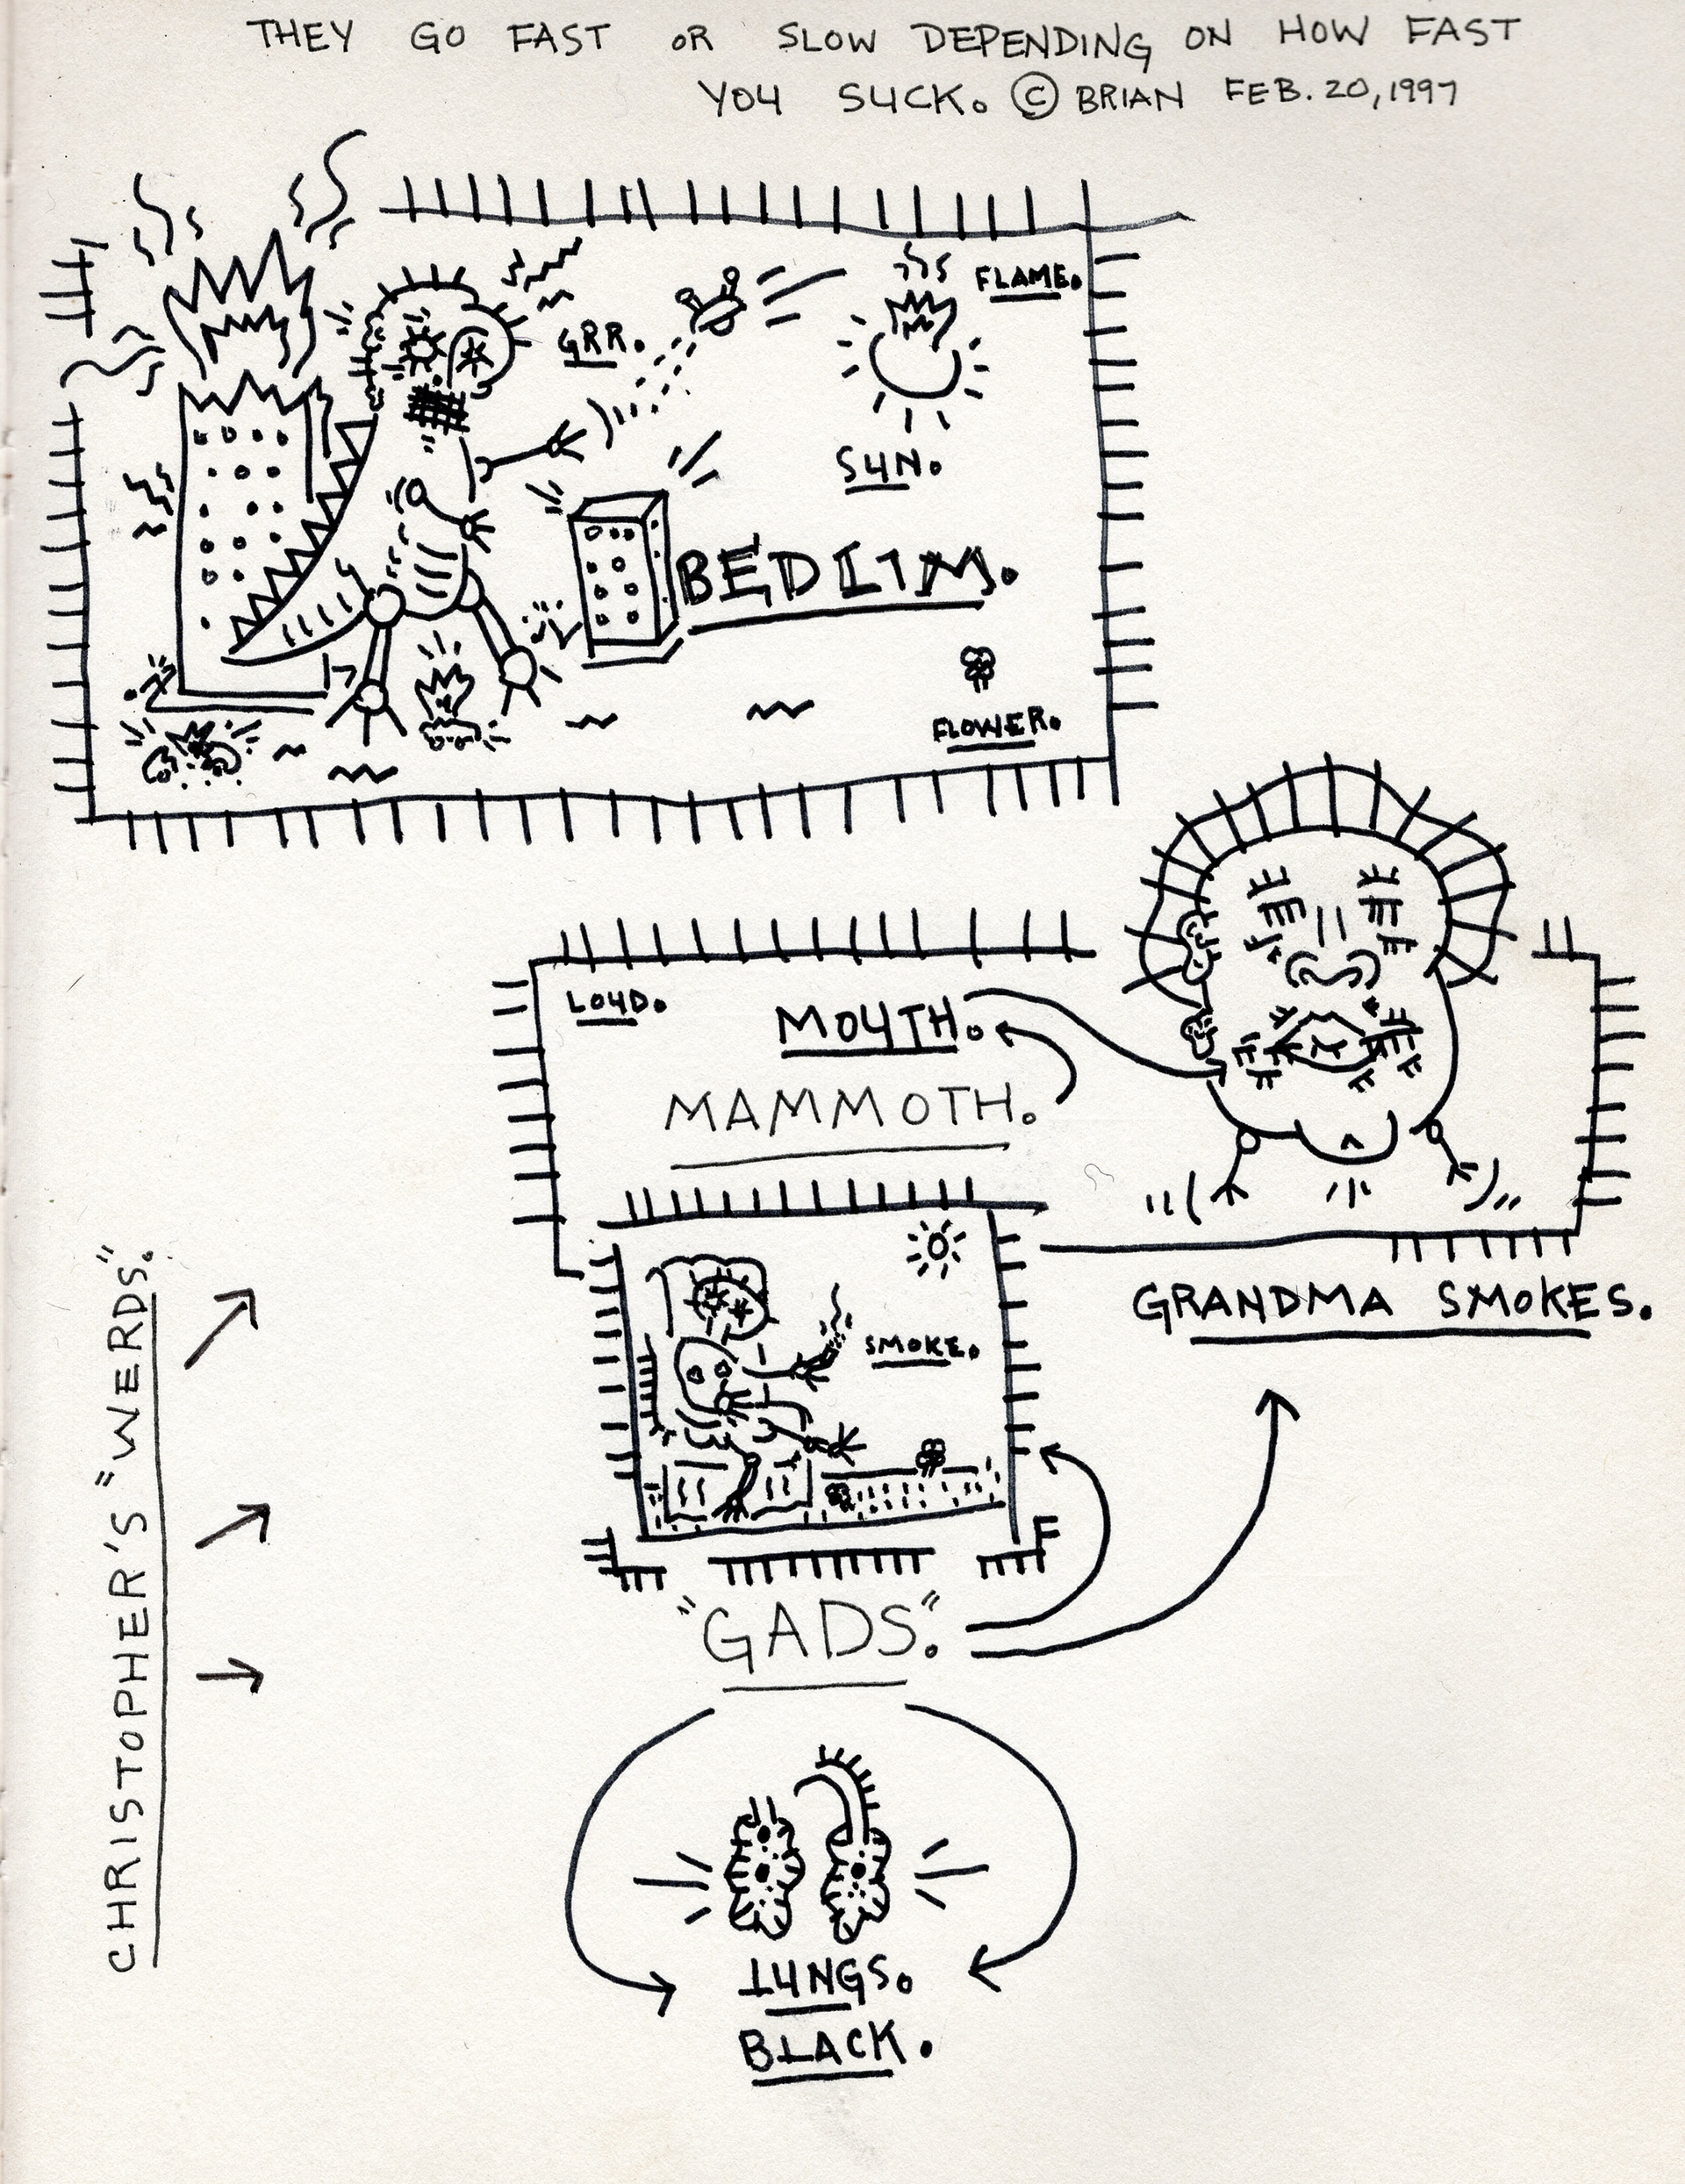 THEY GO FAST OR SLOW DEPENDING ON HOW FAST
YOU SUCK. © BRIAN FEB. 20, 1997
FLAME.
GRR.
SUN.
BEDLUM.
FLOWER.
LOUD.
MOUTH.
MAMMOTH.
GRANDMA SMOKES.
SMOKE.
"GADS".
CHRISTOPHER'S "WERDS".
LUNGS.
BLACK.